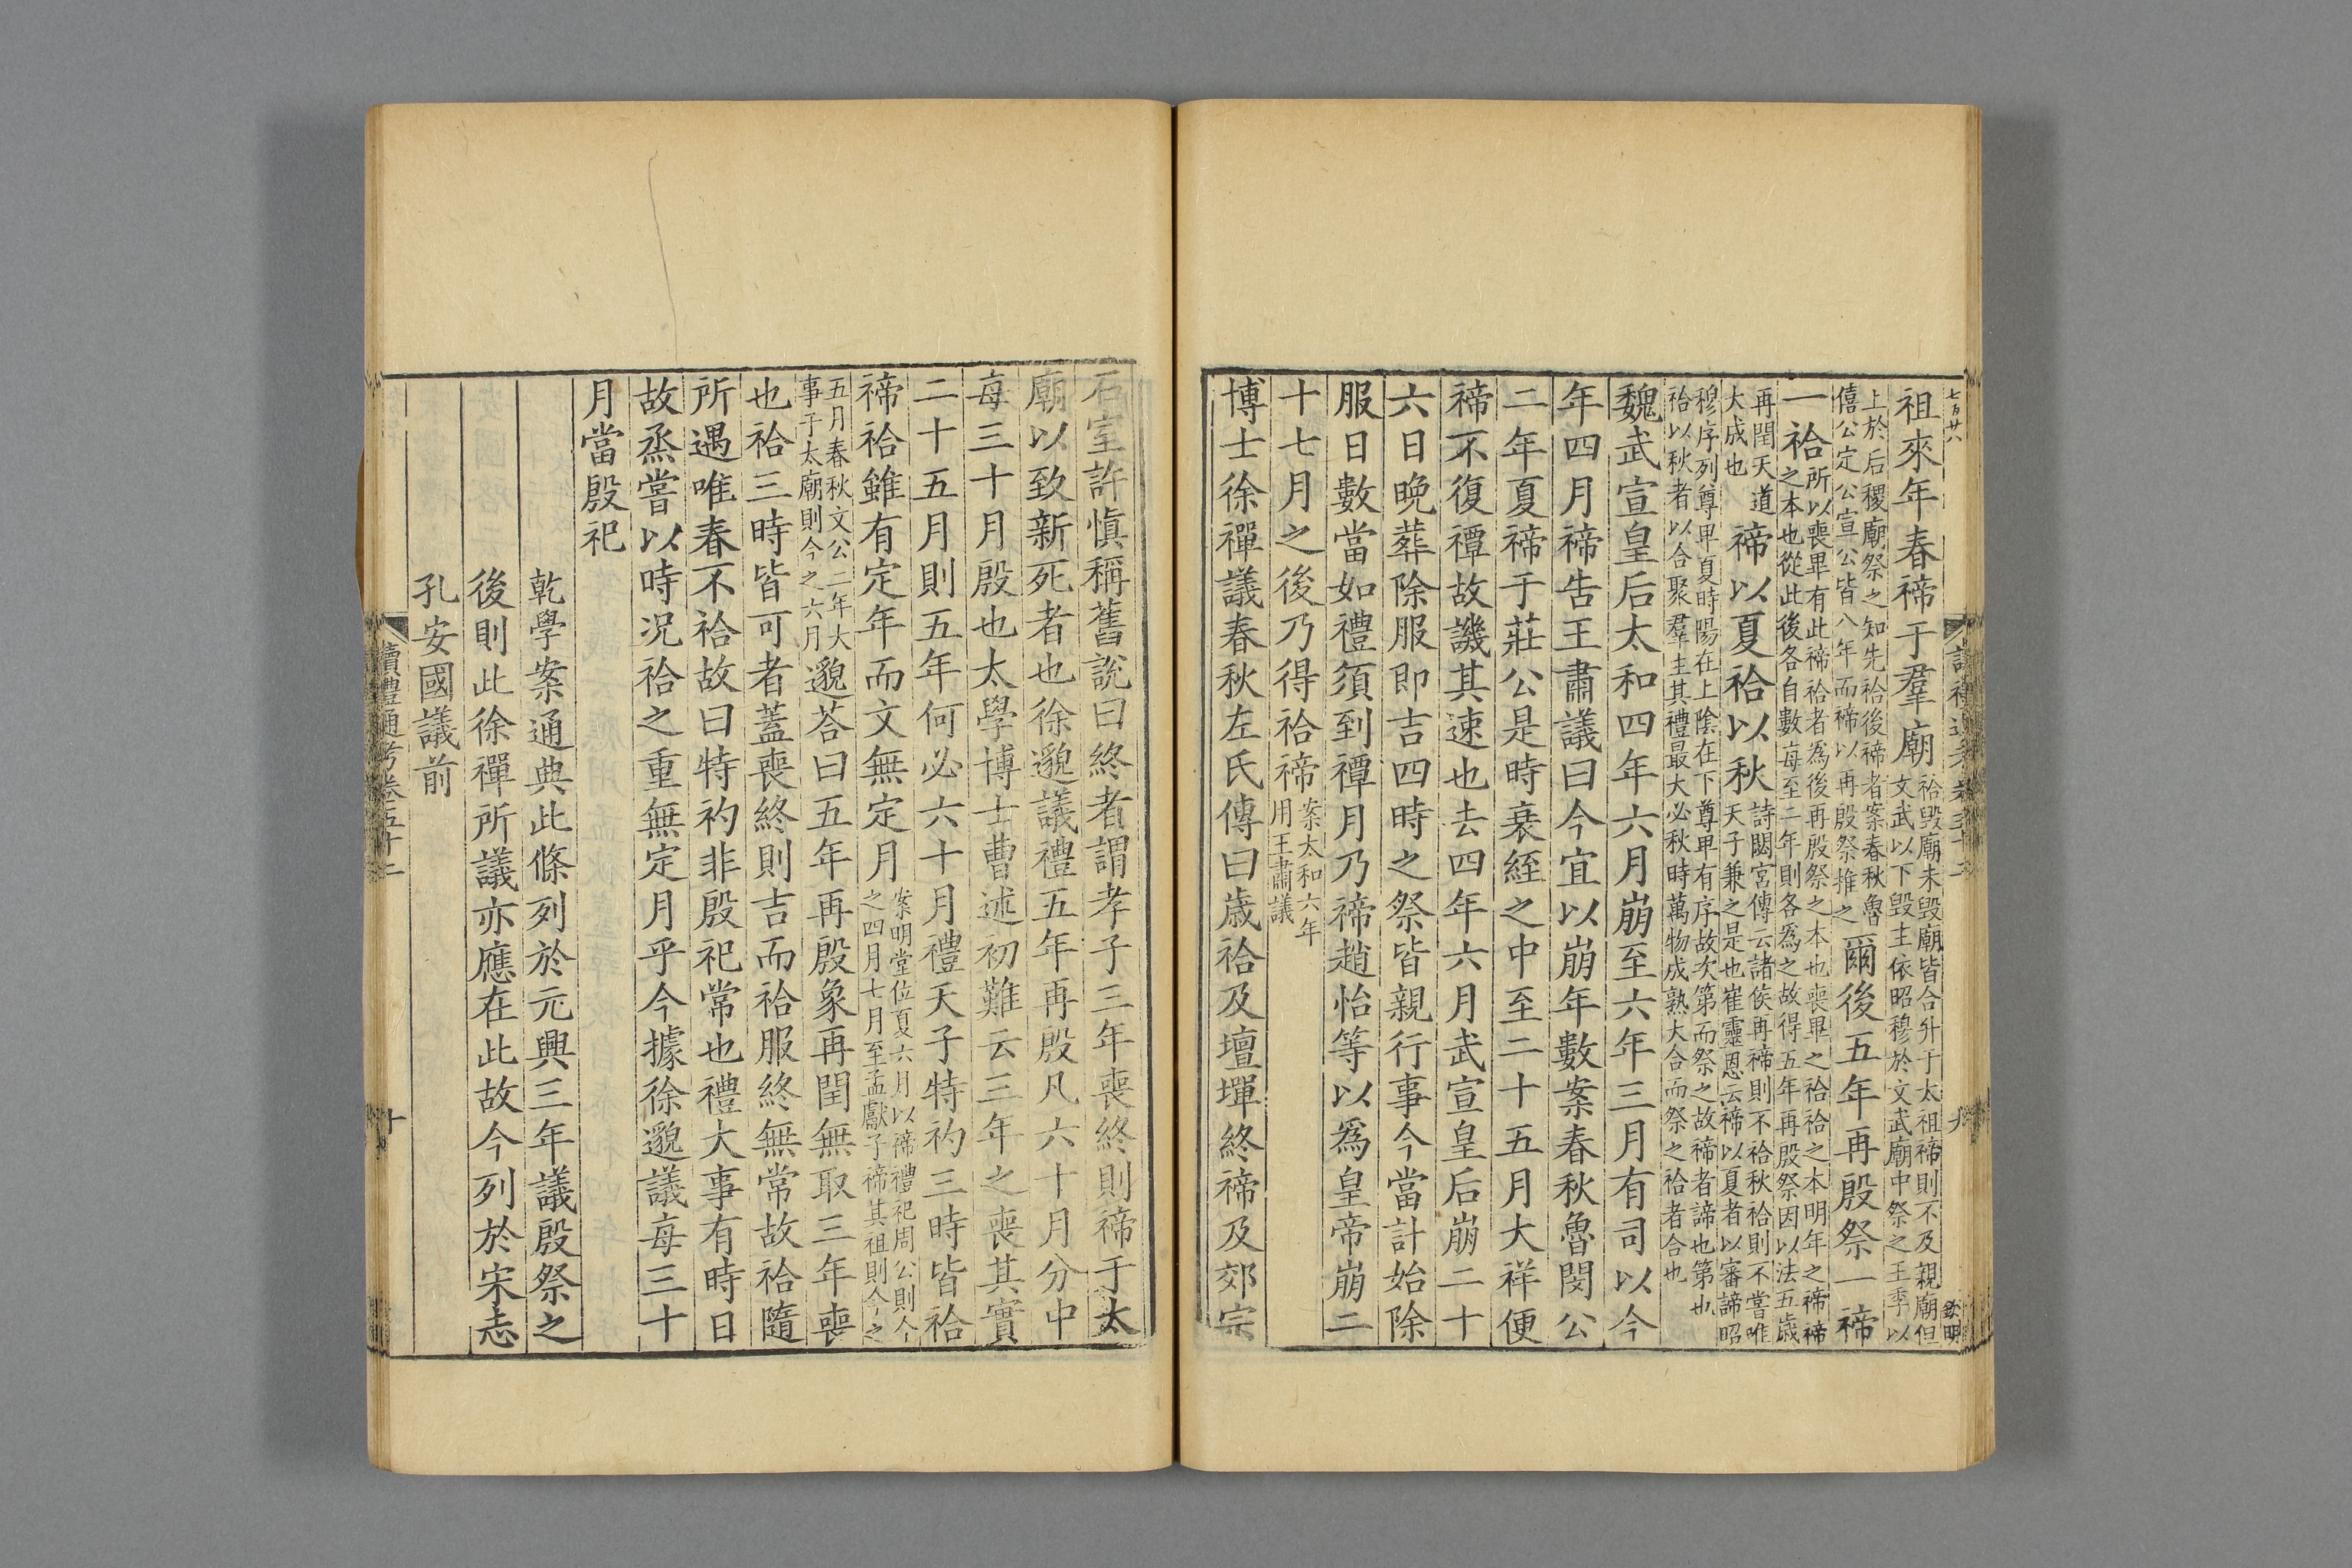 七百廿八
祖來年春禘于羣廟祫毀廟未毀廟皆合升于太祖禘則不及親廟但文武以下毀主依昭穆於文武廟中祭之王季以
上於后稷廟祭之知先祫後禘者案春秋魯僖公定公宣公皆八年而禘以再殷祭推之爾後五年再殷祭一禘
一祫所以喪畢有此禘祫者為後再殷祭之本也喪畢之祫祫之本明年之禘禘之本也從此後各自數每至二年則各為之故得五年再殷祭因以法五歲
再閏天道大成也禘以夏祫以秋詩閟宮傳云諸侯再禘則不祫秋祫則不嘗唯天子兼之是也崔靈恩云禘以夏者以審諦昭
穆序列尊卑夏時陽在上陰在下尊卑有序故次第而祭之故禘者諦也第也祫以秋者以合聚羣主其禮最大必秋時萬物成熟大合而祭之祫者合也
魏武宣皇后太和四年六月崩至六年三月有司以今
年四月禘告王肅議曰今宜以崩年數案春秋魯閔公
二年夏禘于莊公是時衰絰之中至二十五月大祥便
禘不復禫故譏其速也去四年六月武宣皇后崩二十
六日晚葬除服即吉四時之祭皆親行事今當計始除
服日數當如禮須到禫月乃禘趙怡等以為皇帝崩二
十七月之後乃得祫禘案太和六年用王肅議
博士徐禪議春秋左氏傳曰歲祫及壇墠終禘及郊宗
石室許慎稱舊說曰終者謂孝子三年喪終則禘于太
廟以致新死者也徐邈議禮五年再殷凡六十月分中
每三十月殷也太學博士曹述初難云三年之喪其實
二十五月則五年何必六十月禮天子特礿三時皆祫
禘祫雖有定年而文無定月案明堂位夏六月以禘禮祀周公則今之四月七月至孟獻子禘其祖則今之
五月春秋文公二年大事于太廟則今之六月邈荅曰五年再殷象再閏無取三年喪
也祫三時皆可者蓋喪終則吉而祫服終無常故祫隨
所遇唯春不祫故曰特礿非殷祀常也禮大事有時日
故烝嘗以時況祫之重無定月乎今據徐邈議每三十
月當殷祀
乾學案通典此條列於元興三年議殷祭之
後則此徐禪所議亦應在此故今列於宋志
孔安國議前
讀禮通考卷五十二
十